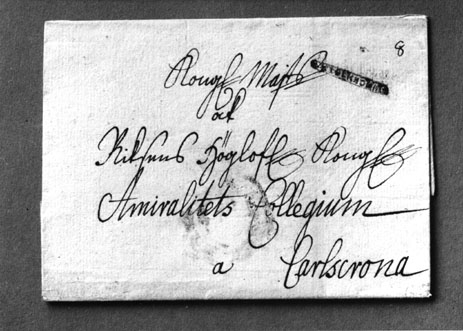 8
Kongl Majts
och
Riksens Höglofl Kongl
Amiralitets Collegium
a
Carlscrona